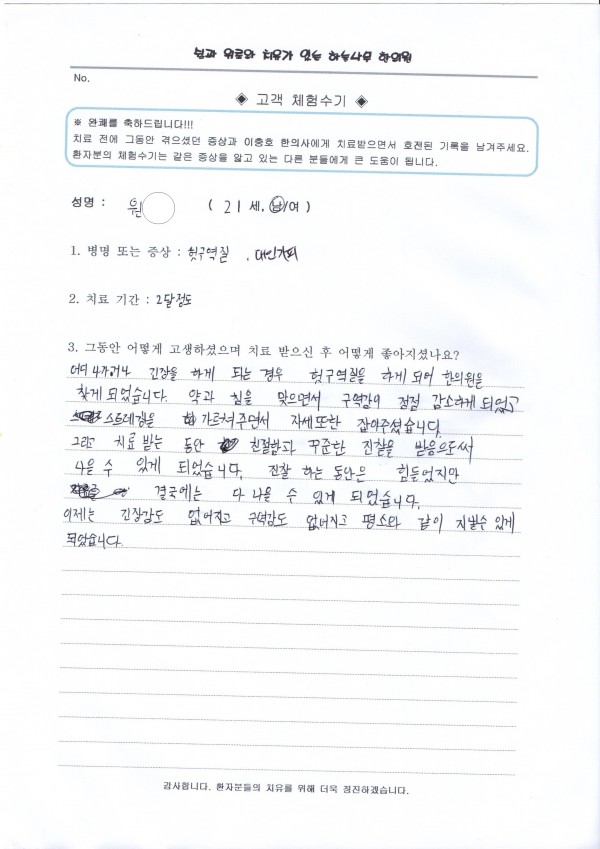 쉼과 위로와 치유가 있는 하늘나무 한의원
No.
◈ 고객 체험수기 ◈
※ 완쾌를 축하드립니다!!!
치료 전에 그동안 겪으셨던 증상과 이충호 한의사에게 치료받으면서 호전된 기록을 남겨주세요.
환자분의 체험수기는 같은 증상을 앓고 있는 다른 분들에게 큰 도움이 됩니다.
성명 : 원 ( 21 세, 남/여 )
1. 병명 또는 증상 : 헛구역질 , 대인기피
2. 치료 기간 : 2달정도
3. 그동안 어떻게 고생하셨으며 치료 받으신 후 어떻게 좋아지셨나요?
어디 나가거나 긴장을 하게 되는 경우 헛구역질을 하게 되어 한의원을
찾게 되었습니다. 약과 침을 맞으면서 구역감이 점점 감소하게 되었고
스트레칭을 가르쳐주면서 자세또한 잡아주셨습니다.
그리고 치료 받는 동안 친절함과 꾸준한 진찰을 받음으로써
나을 수 있게 되었습니다. 진찰 하는 동안은 힘들었지만
결국에는 다 나을 수 있게 되었습니다.
이제는 긴장감도 없어지고 구역감도 없어지고 평소와 같이 지낼수 있게
되었습니다.
감사합니다. 환자분들의 치유를 위해 더욱 정진하겠습니다.